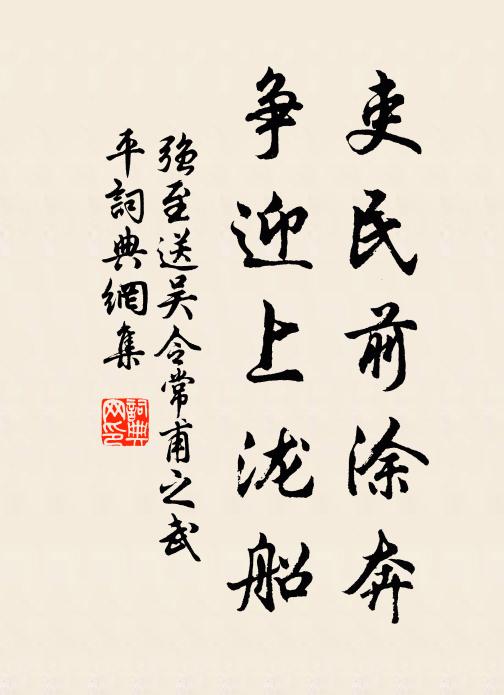 吏民前涂奔
争迎上泷船
强至送吴令常甫之武
平詞典網集
詞典
网印